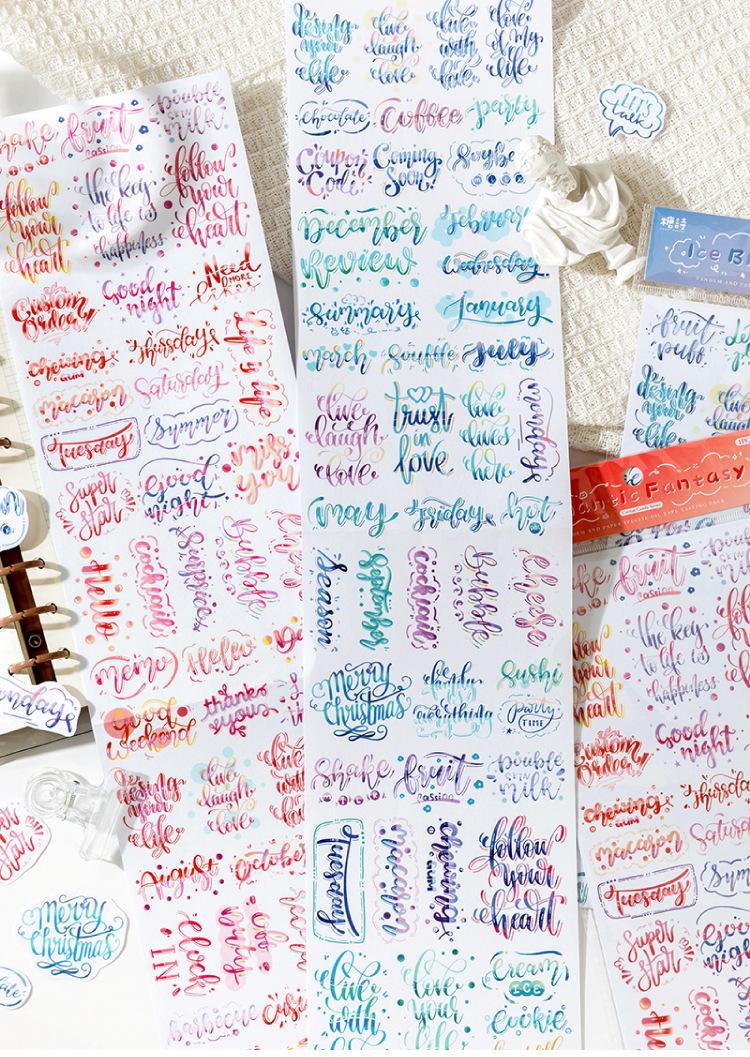 desing
your
life
live
laugh
love
live
with
love
love
my
life
chocolate
Coffee
party
Coupon
Code
Coming
Soon
LET'S
talk
December
Review
february
Wednesday
Summary
January
march
Souffle
July
live
laugh
love
trust
in
love
love
lives
here
monday
may
friday
hot
Season
September
cocktail
Bubble
Cheese
Merry
Christmas
everything
Sushi
party
TIME
Shake
fruit
passion
Double
SKIN
milk
Tuesday
macaron
chewing
GUM
follow
your
heart
live
with
love
your
Cream
ICE
Cookie
Shake
fruit
passion
Double
milk
follow
your
heart
the key
to life is
happiness
follow
your
heart
Custom
Ordea
Good
night
Need
MORE
likes
chewing
GUM
Thursday
life is life
macaron
Saturday
Tuesday
Summer
Super
Star
Good
night
miss
you
Hello
cocktail
Surprise
Bubble
memo
Hello
Good
weekend
thanks
you
desing
your
life
live
laugh
love
live
with
August
October
clock
IN
barbecue
onday
Super
Star
Merry
Christmas
糖詩
Ice B
fruit
puff
desing
your
life
antic Fantasy
fruit
passion
the key
to life is
happiness
your
heart
Custom
Ordea
Good
night
chewing
GUM
Thursday
macaron
Saturday
Tuesday
Super
Star